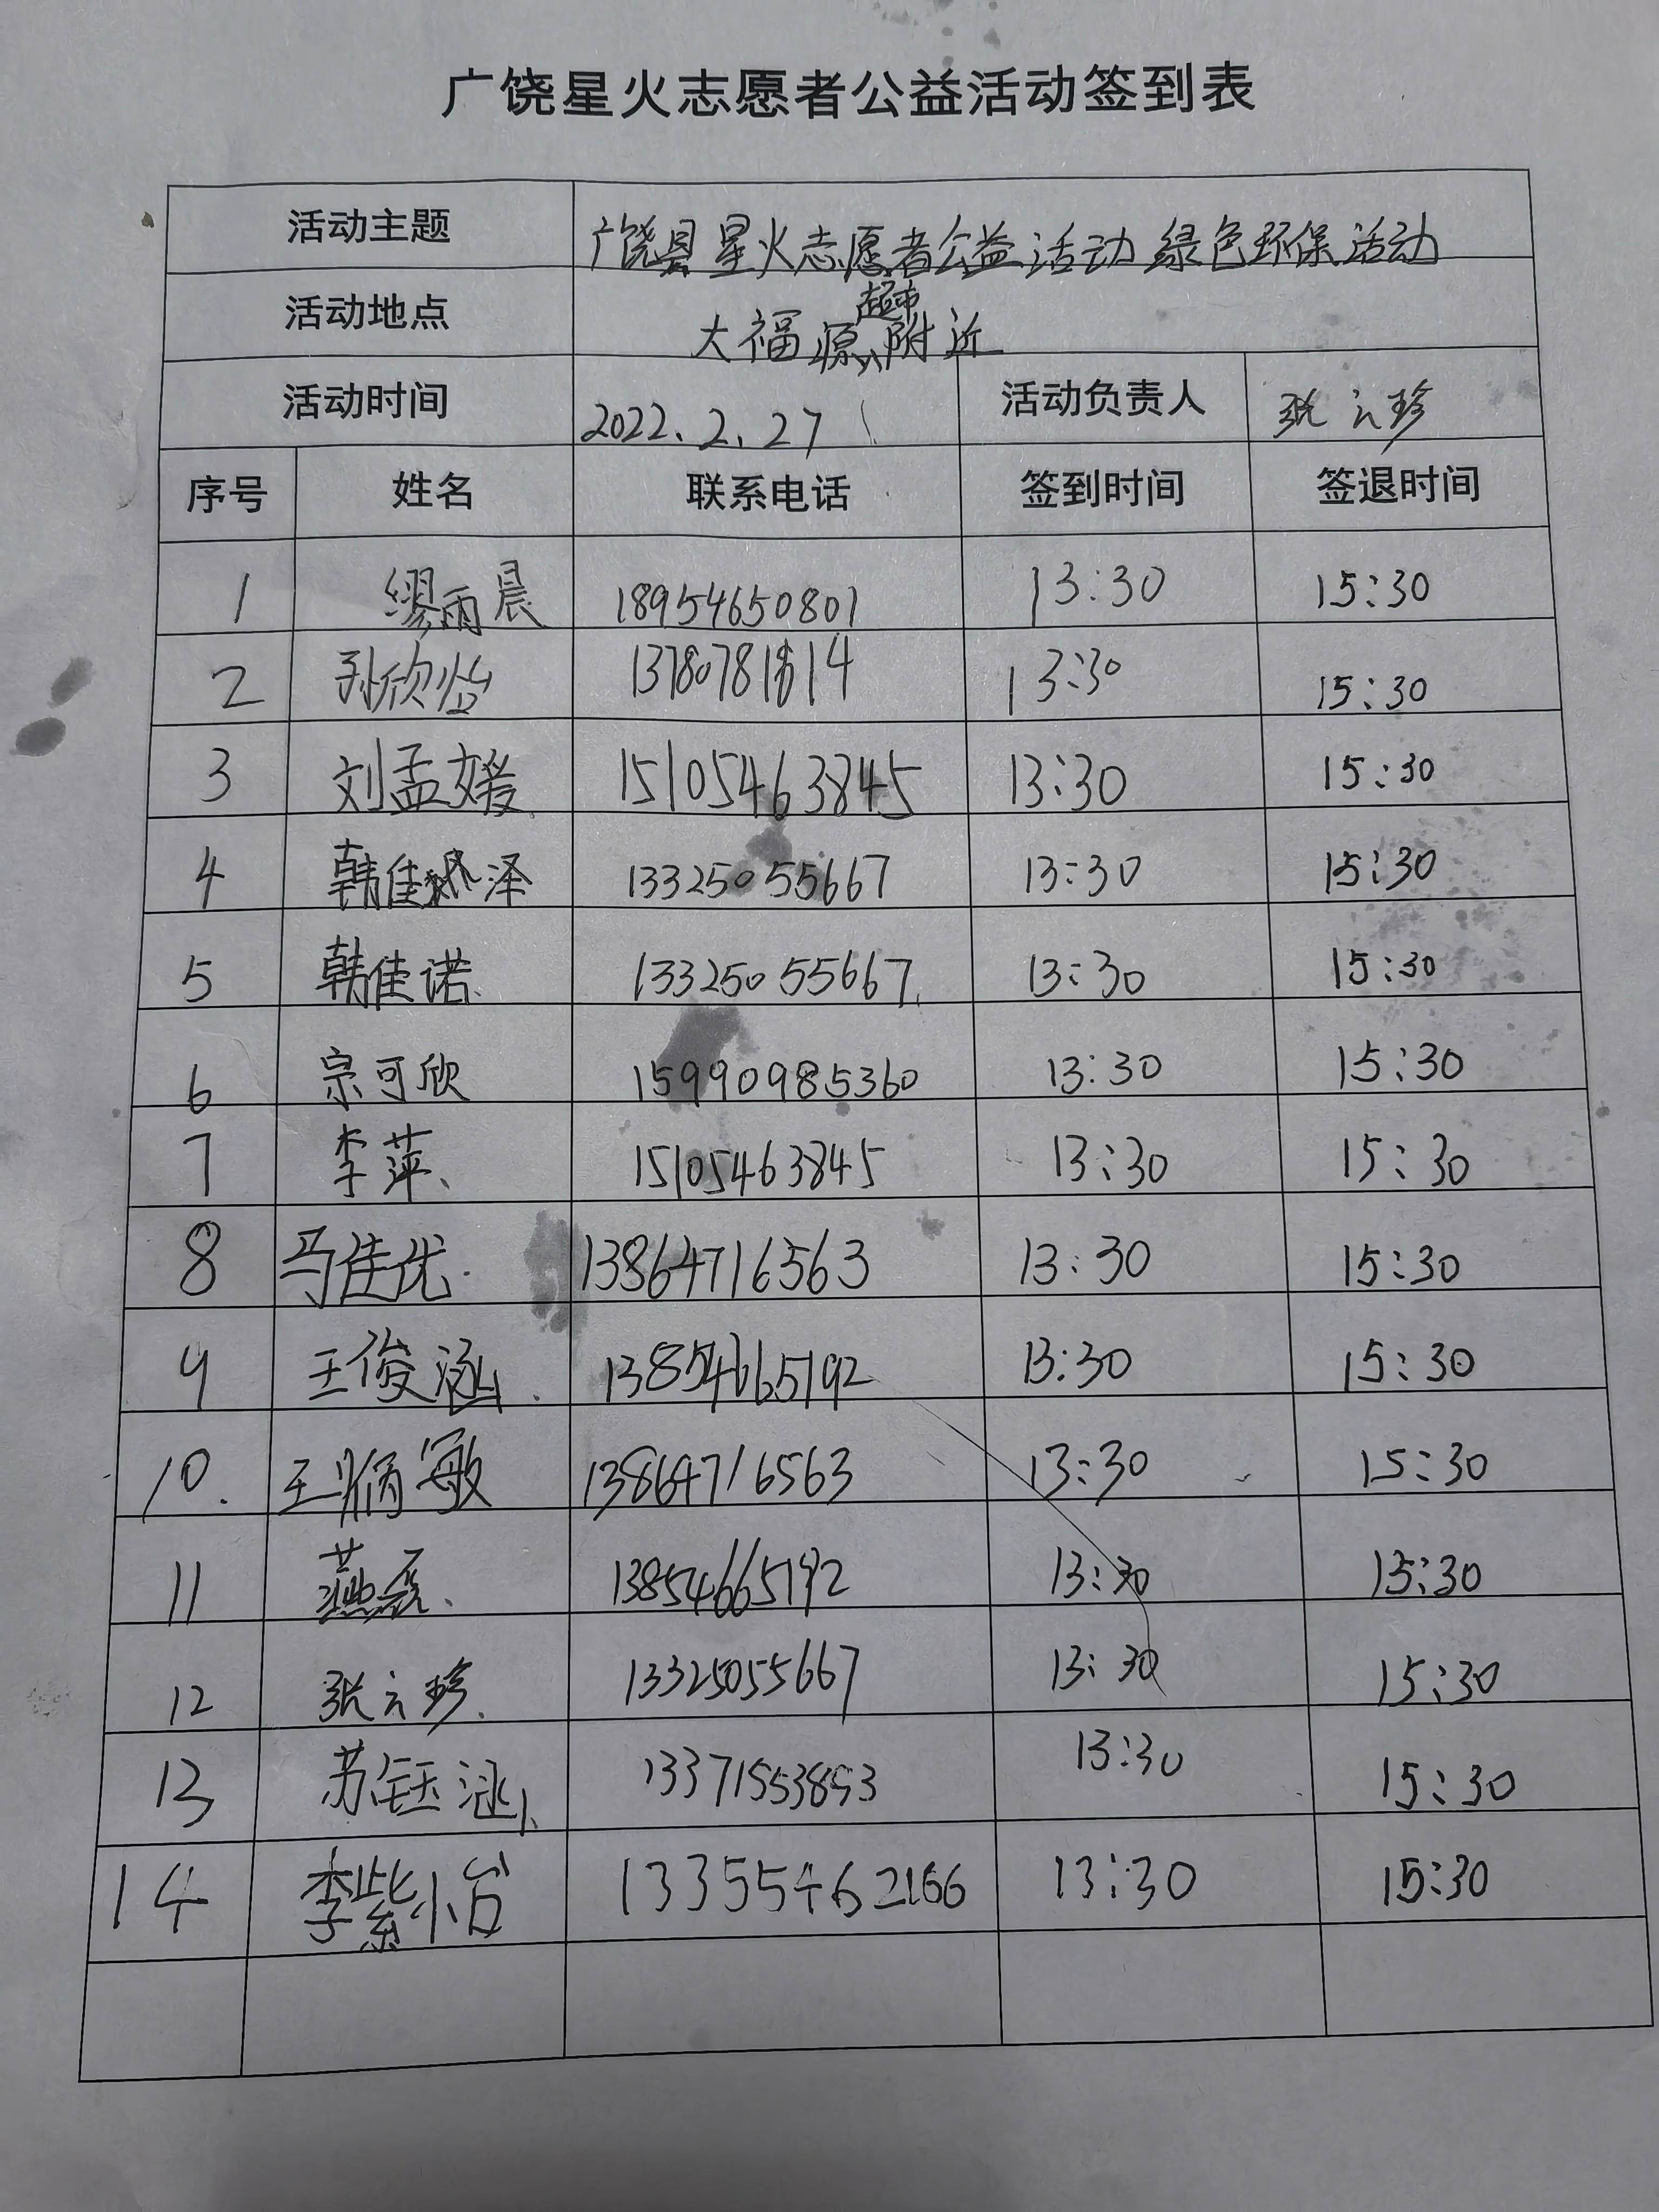 广饶星火志愿者公益活动签到表
活动主题 广饶县星火志愿者公益活动绿色环保活动
活动地点 大福源超市附近
活动时间 2022.2.27 活动负责人 张云珍
序号 姓名 联系电话 签到时间 签退时间
1 缪雨晨 18954650801 13:30 15:30
2 孙欣怡 13:30 15:30
3 刘孟媛 15105463845 13:30 15:30
4 韩佳泽 13325055667 13:30 15:30
5 韩佳诺 13325055667 13:30 15:30
6 宗可欣 159909985360 13:30 15:30
7 李萍 15105463845 13:30 15:30
8 马佳优 13864716563 13:30 15:30
9 王俊涵 13854665192 13:30 15:30
10. 王 敏 13864716563 13:30 15:30
11 燕磊 13854665192 13:30 15:30
12 张云珍 13325055667 13:30 15:30
13 苏钰涵 13371553853 13:30 15:30
14 李紫怡 13355462166 13:30 15:30